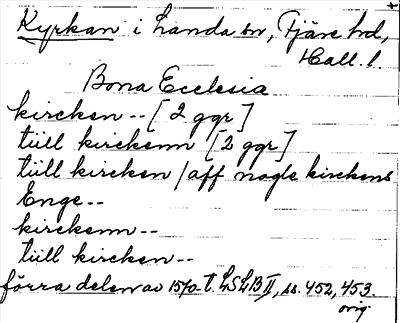 Kyrkan i Landa sn, Fjäre hd,
Hall. l.
Bona Ecclesia
kircken -- [2 ggr]
tüll kirckenn [2 ggr]
tüll kircken /aff nogle kirckens
Enge --
kirckenn --
tüll kircken --
förra delen av 1570-t. LSLB II, ss. 452, 453.
orig.